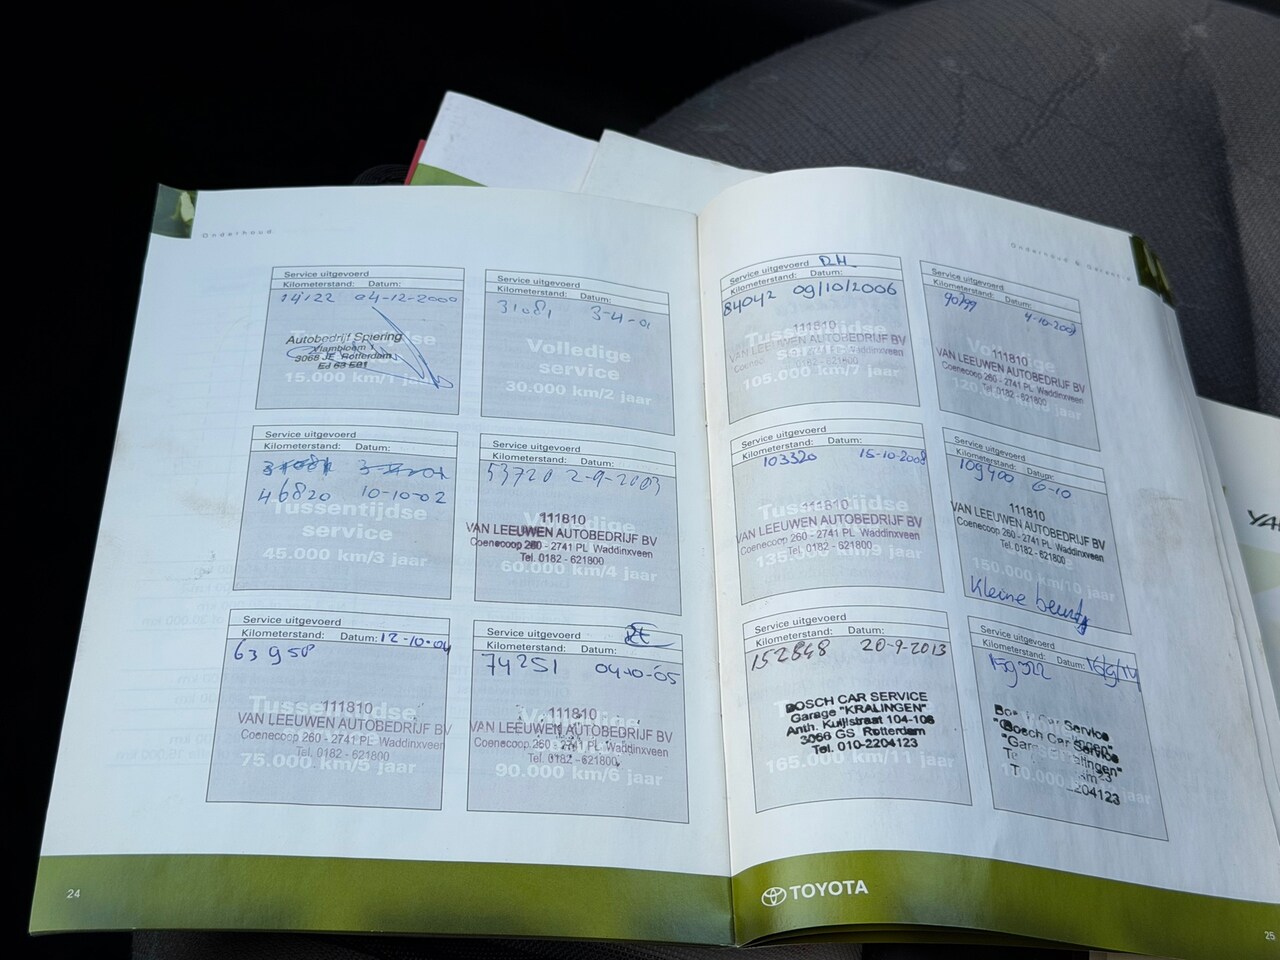 Onderhoud
Service uitgevoerd
Kilometerstand: Datum:
14122 04-12-2000
Autobedrijf Spiering
Vlambloem 1
3068 JE Rotterdam
15.000 km/1 jaar
Service uitgevoerd
Kilometerstand: Datum:
31081 3-4-01
Volledige
service
30.000 km/2 jaar
Service uitgevoerd
Kilometerstand: Datum:
46820 10-10-02
Tussentijdse
service
45.000 km/3 jaar
Service uitgevoerd
Kilometerstand: Datum:
53720 2-9-2003
Volledige
111810
VAN LEEUWEN AUTOBEDRIJF BV
Coenecoop 260 - 2741 PL Waddinxveen
Tel. 0182 - 621800
60.000 km/4 jaar
Service uitgevoerd
Kilometerstand: Datum: 12-10-04
63950
Tussentijdse
111810
VAN LEEUWEN AUTOBEDRIJF BV
Coenecoop 260 - 2741 PL Waddinxveen
Tel. 0182 - 621800
75.000 km/5 jaar
Service uitgevoerd
Kilometerstand: Datum:
74251 04-10-'05
Volledige
111810
VAN LEEUWEN AUTOBEDRIJF BV
Coenecoop 260 - 2741 PL Waddinxveen
Tel. 0182 - 621800
90.000 km/6 jaar
24
Onderhoud & Garantie
Service uitgevoerd
Kilometerstand: Datum:
84042 09/10/2006
Tussentijdse
service
111810
VAN LEEUWEN AUTOBEDRIJF BV
Coenecoop 260 - 2741 PL Waddinxveen
Tel. 0182 - 621800
105.000 km/7 jaar
Service uitgevoerd
Kilometerstand: Datum:
Volledige
111810
VAN LEEUWEN AUTOBEDRIJF BV
Coenecoop 260 - 2741 PL Waddinxveen
Tel. 0182 - 621800
jaar
Service uitgevoerd
Kilometerstand: Datum:
103320 15-10-2008
Tussentijdse
111810
VAN LEEUWEN AUTOBEDRIJF BV
Coenecoop 260 - 2741 PL Waddinxveen
Tel. 0182 - 621800
135.000 km/9 jaar
Service uitgevoerd
Kilometerstand: Datum:
109400 6-10
111810
VAN LEEUWEN AUTOBEDRIJF BV
Coenecoop 260 - 2741 PL Waddinxveen
Tel. 0182 - 621800
150.000 km/10 jaar
Kleine beurt
Service uitgevoerd
Kilometerstand: Datum:
152848 20-9-2013
BOSCH CAR SERVICE
Garage "KRALINGEN"
Anth. Kuijlstraat 104-106
3066 GS Rotterdam
Tel. 010-2204123
165.000 km/11 jaar
Service uitgevoerd
Kilometerstand: Datum:
159322
Car Service
"Bosch Car Service
jaar
TOYOTA
25
YA